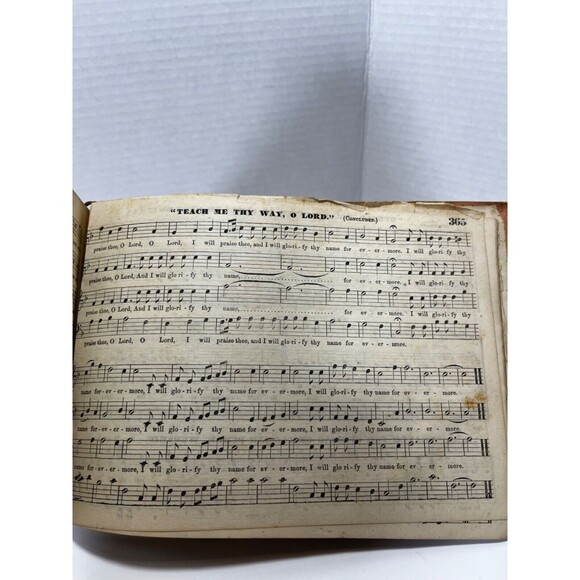 "TEACH ME THY WAY, O LORD." (CONCLUDED.) 365
praise thee, O Lord, O Lord, I will praise thee, and I will glo-ri-fy thy name for ev-er-more. I will glo-ri-fy thy
praise thee, O Lord, And I will glo-ri-fy thy name, for ev-er-more, I will glo-ri-fy thy
praise thee, O Lord, And I will glo-ri-fy thy name, for ev-er-more, I will glo-ri-fy thy
praise thee, O Lord, O Lord, I will praise thee, and I will glo-ri-fy thy name for ev-er-more.
name for-ev-er-more, I will glo-ri-fy thy name for ev-er-more, I will glo-ri-fy thy name for ev-er-more.
name for-ev-er-more, I will glo-ri-fy thy name for ev-er-more, I will glo-ri-fy thy name for ev-er-more.
name for-ev-er-more, I will glo-ri-fy thy name for ev-er-more, I will glo-ri-fy thy name for ev-er-more.